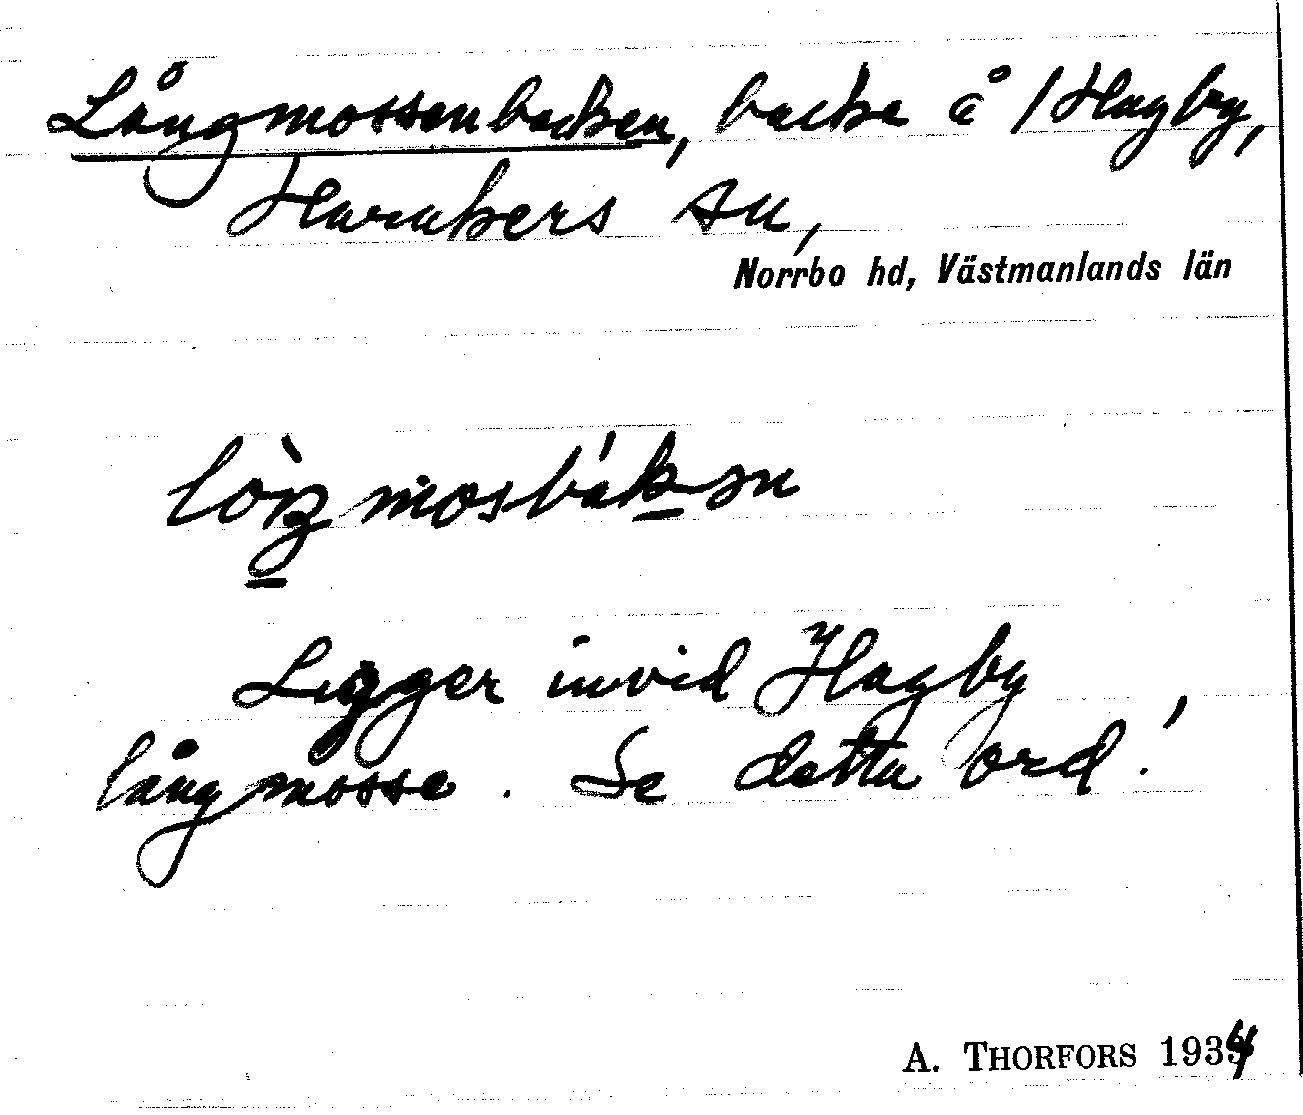 Långmossenbacken, backe å /Hagby,
Haraker sn,
Norrbo hd, Västmanlands län
Ligger invid Hagby
långmosse. Se detta ord!
A. THORFORS 1934